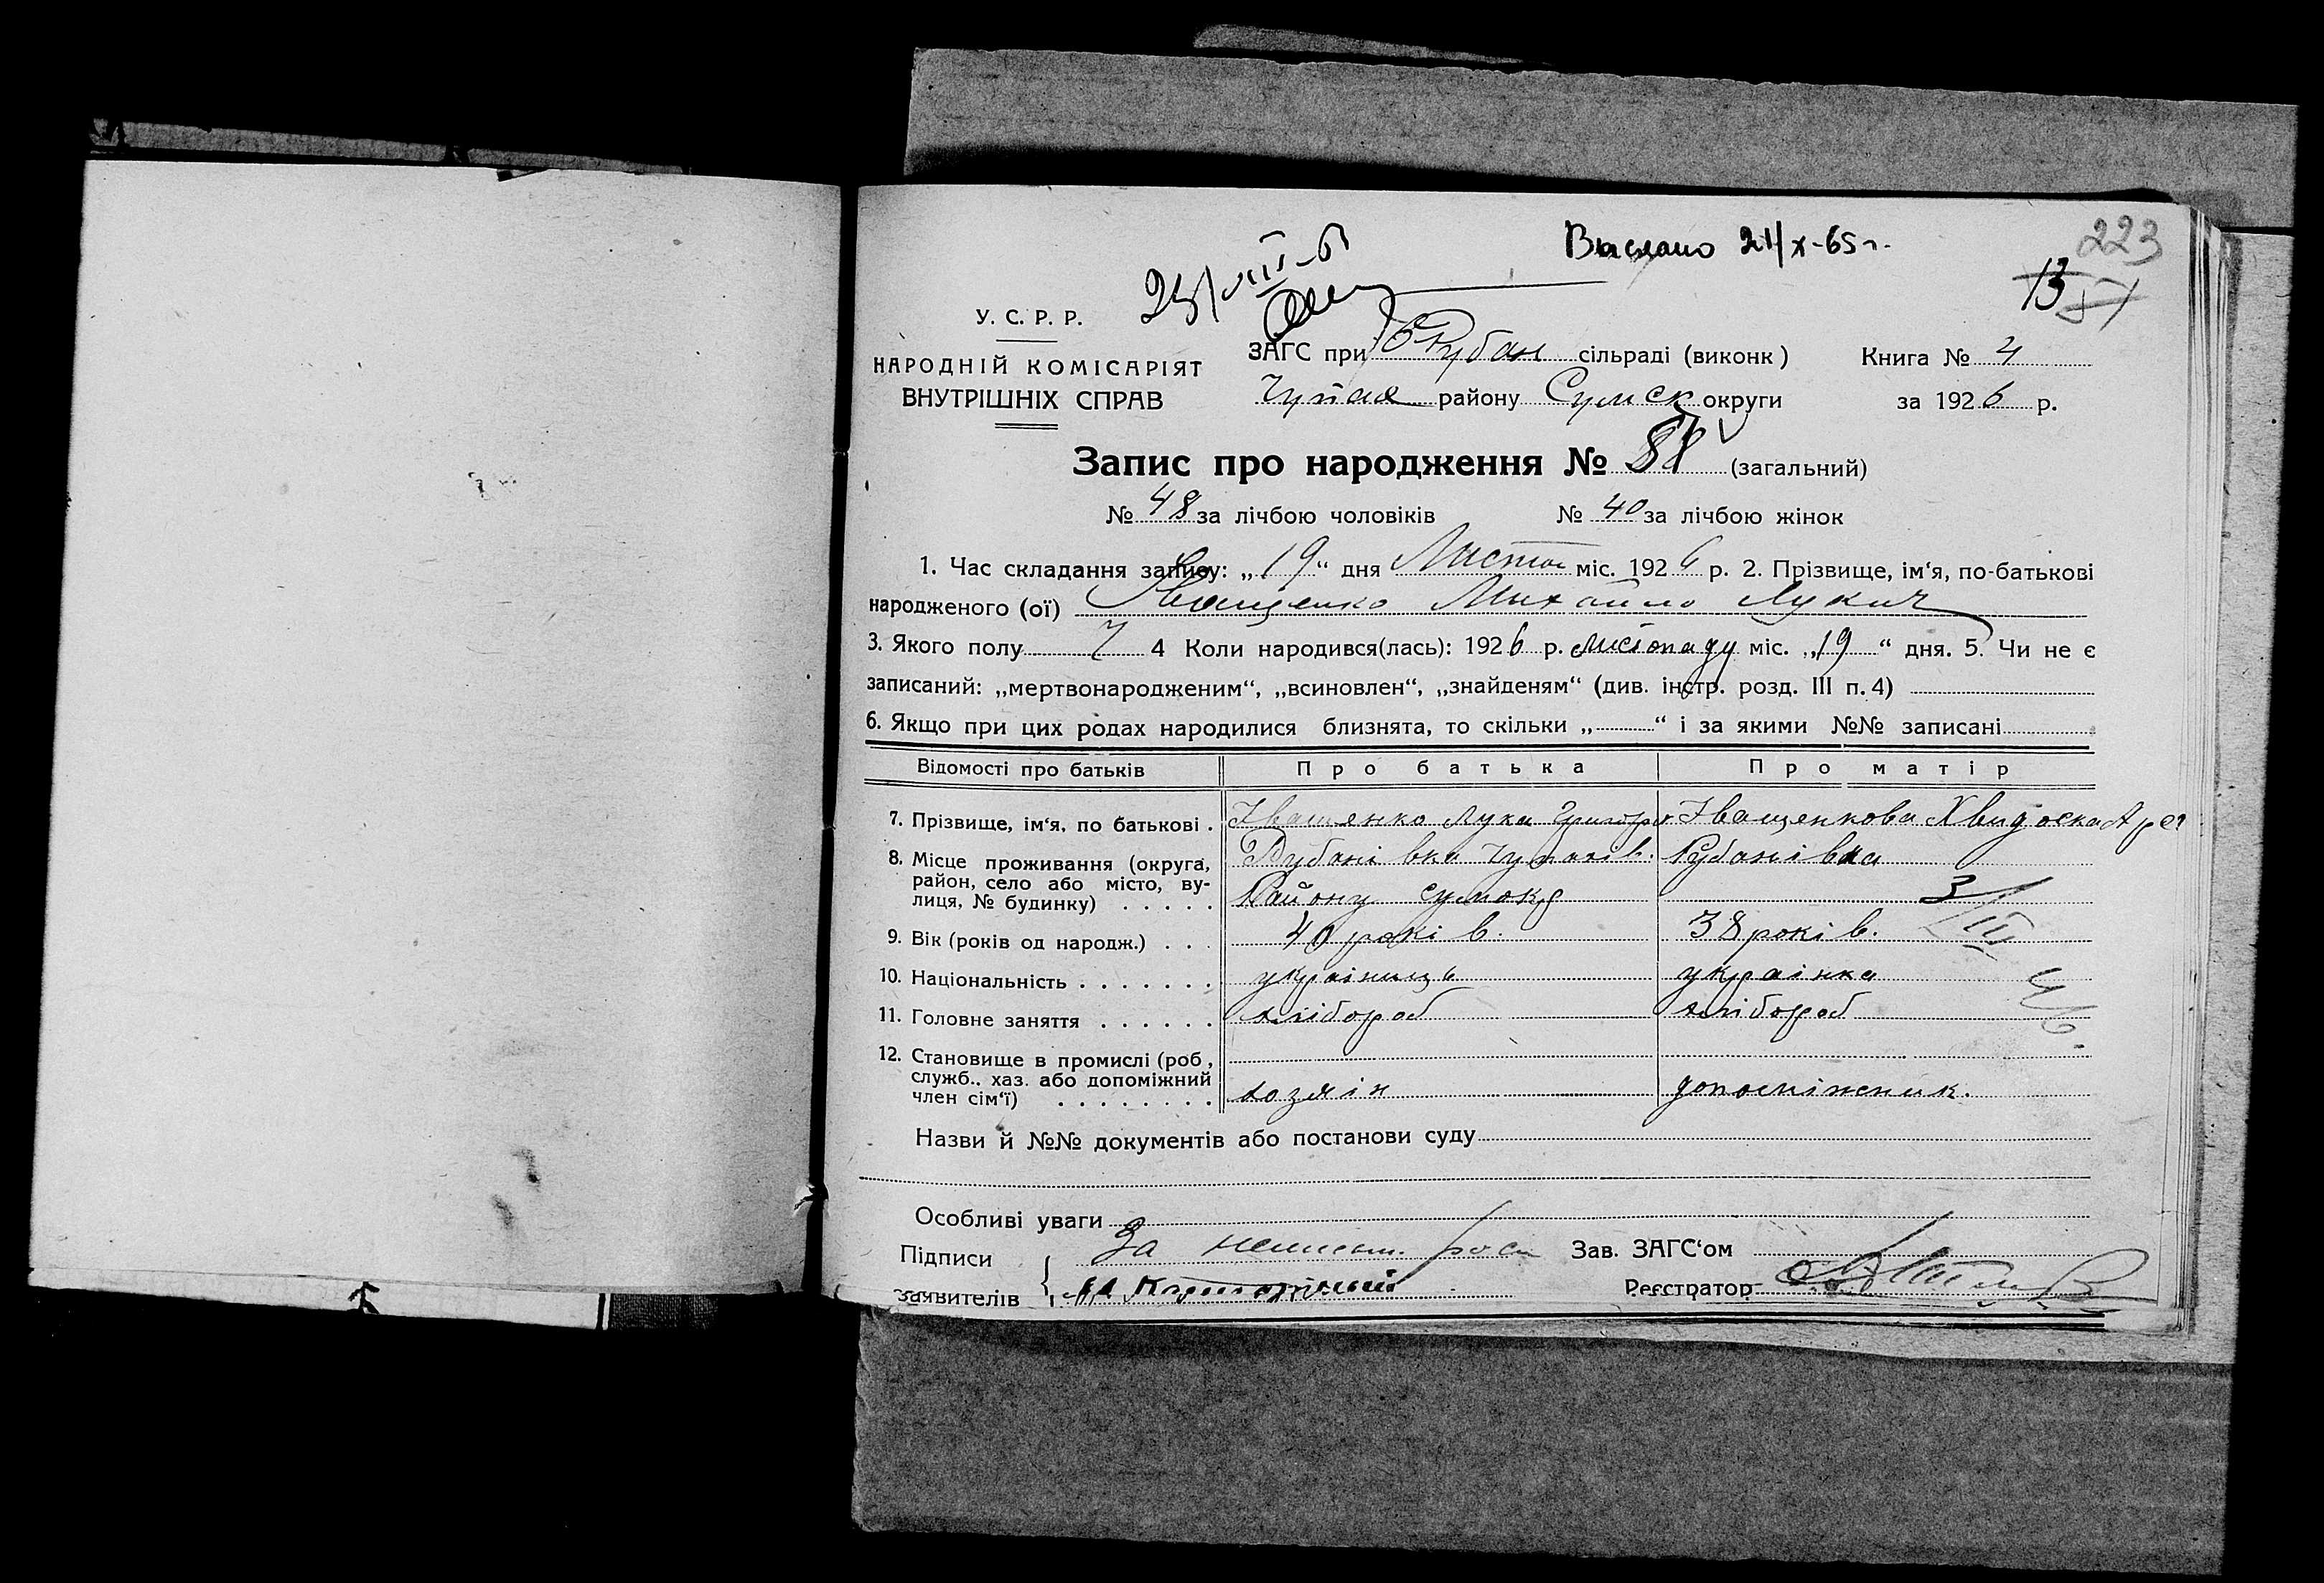 Выслано 21/X-65 г.
223
25/VIII-61
13
У. С. Р. Р.
НАРОДНІЙ КОМІСАРІЯТ
ВНУТРІШНІХ СПРАВ
ЗАГС при Рубан сільраді (виконк) Книга № 4
Чупах району Сумск округи за 1926 р.
Запис про народження № 88 (загальний)
№ 48 за лічбою чоловіків № 40 за лічбою жінок
1. Час складання запису: „19“ дня Листоп міс. 1926 р. 2. Прізвище, ім‘я, по-батькові
народженого (ої) Іващенко Михайло Лукич
3. Якого полу Ч 4 Коли народився(лась): 1926 р. листопаду міс. „19“ дня. 5. Чи не є
записаний: „мертвонародженим“, „всиновлен“, „знайденям“ (див. інстр. розд. III п. 4)
6. Якщо при цих родах народилися близнята, то скільки „ “ і за якими №№ записані
Відомості про батьків Про батька Про матір
7. Прізвище, ім‘я, по батькові . Іващенко Лука Григоров Іващенкова Хвидоска
8. Місце проживання (округа, Рубанівка Чупахів. Рубанівка
район, село або місто, ву-
лиця, № будинку) . . . . . Району Сумок 3/III
9. Вік (років од народж.) . . . 40 років. 38 років.
10. Національність . . . . . . . українець українка
11. Головне заняття . . . . . . хлібороб хлібороб
12. Становище в промислі (роб,
служб., хаз. або допоміжний
член сім‘ї) . . . . . . . . хозяін допоміжник.
Назви й №№ документів або постанови суду
Особливі уваги
Підписи За неписьм. Зав. ЗАГС‘ом
заявителів Реєстратор